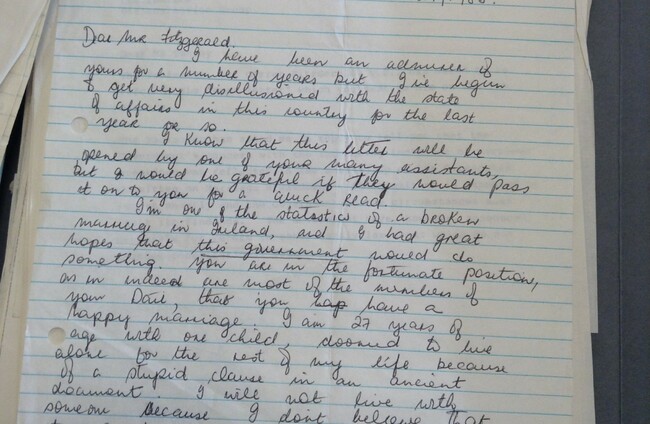 Dear Mr Fitzgerald.
I have been an admirer of
yours for a number of years but I've begun
to get very disillusioned with the state
of affairs in this country for the last
year or so.
I know that this letter will be
opened by one of your many assistants,
but I would be grateful if they would pass
it on to you for a quick read.
I'm one of the statastics of a broken
marriage in Ireland, and I had great
hopes that this government would do
something. you are in the fortunate position,
as in indeed are most of the members of
your Dail, that you hap have a
happy marriage. I am 27 years of
age with one child, doomed to live
alone for the rest of my life because
of a stupid clause in an ancient
document. I will not live with
someone because I don't believe that